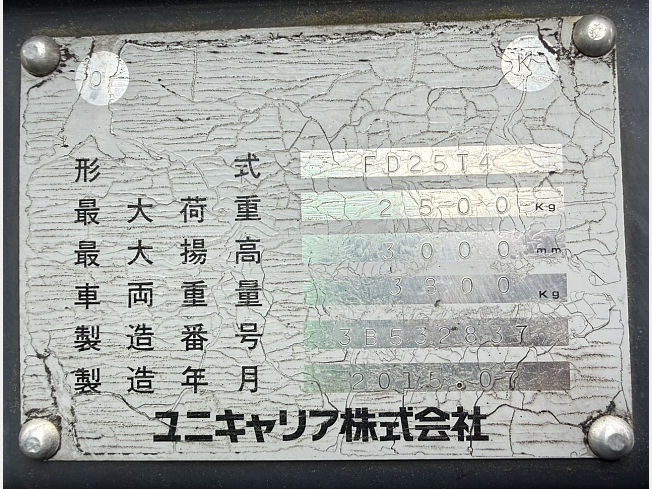 O K
形式 FD25T4
最大荷重 2500 Kg
最大揚高 3000 mm
車両重量 3800 Kg
製造番号 3B532837
製造年月 2015.07
ユニキャリア株式会社